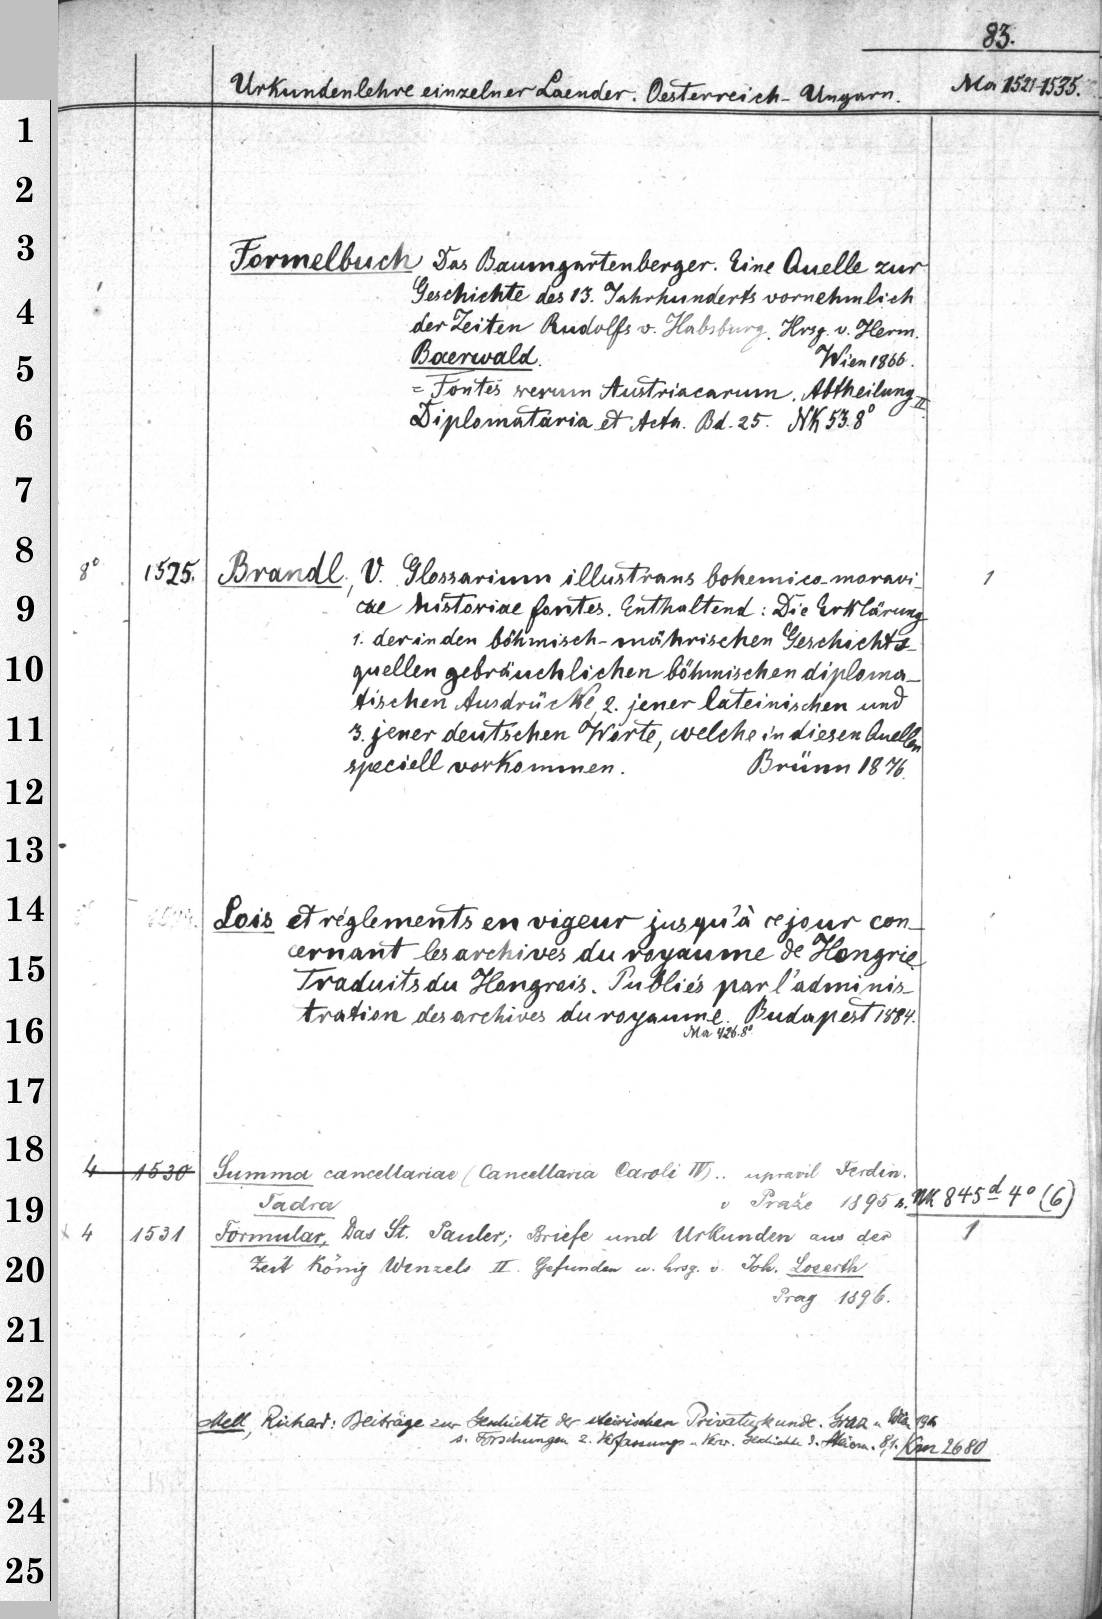 83.
Urkundenlehre einzelner Laender. Oesterreich-Ungarn. Ma 1521-1535.
1
2
3
Formelbuch, Das Baumgartenberger. Eine Quelle zur
Geschichte des 13. Jahrhunderts vornehmlich
4
der Zeiten Rudolfs v. Habsburg. Hrsg. v. Herm.
Baerwald. Wien 1866.
5
= Fontes rerum Austriacarum. Abtheilung II
Diplomataria et Acta. Bd. 25. NK 53.8°
6
7
8
8° 1525. Brandl, V. Glossarium illustrans bohemico-moravi- 1
cae historiae fontes. Enthaltend: Die Erklärung
9
1. der in den böhmisch-mährischen Geschichts-
quellen gebräuchlichen böhmischen diploma-
10
tischen Ausdrücke, 2. jener lateinischen und
3. jener deutschen Worte, welche in diesen Quellen
11
speciell vorkommen. Brünn 1876.
12
13
14
Lois et réglements en vigeur jusqu'à ce jour con-
cernant les archives du royaume de Hongrie
15
Traduits du Hongrois. Publiés par l'adminis-
tration des archives du royaume. Budapest 1884.
16
Ma 426.8°
17
18
4 1530 Summa cancellariae (Cancellaria Caroli IV) .. upravil Ferdin.
19
Tadra v Praze 1895 s. NK 845 d 4° (6)
4 1531 Formular, Das St. Pauler; Briefe und Urkunden aus der 1
20
Zeit König Wenzels II. Gefunden u. hrsg. v. Joh. Loserth
Prag 1896.
21
22
Mell, Richard: Beiträge zur Geschichte der steirischen Privaturkunde. Graz u.
23
s. Forschungen z. Verfassungs u. Verw. Geschichte d. Steierm. 8,1. Km 2680
24
25